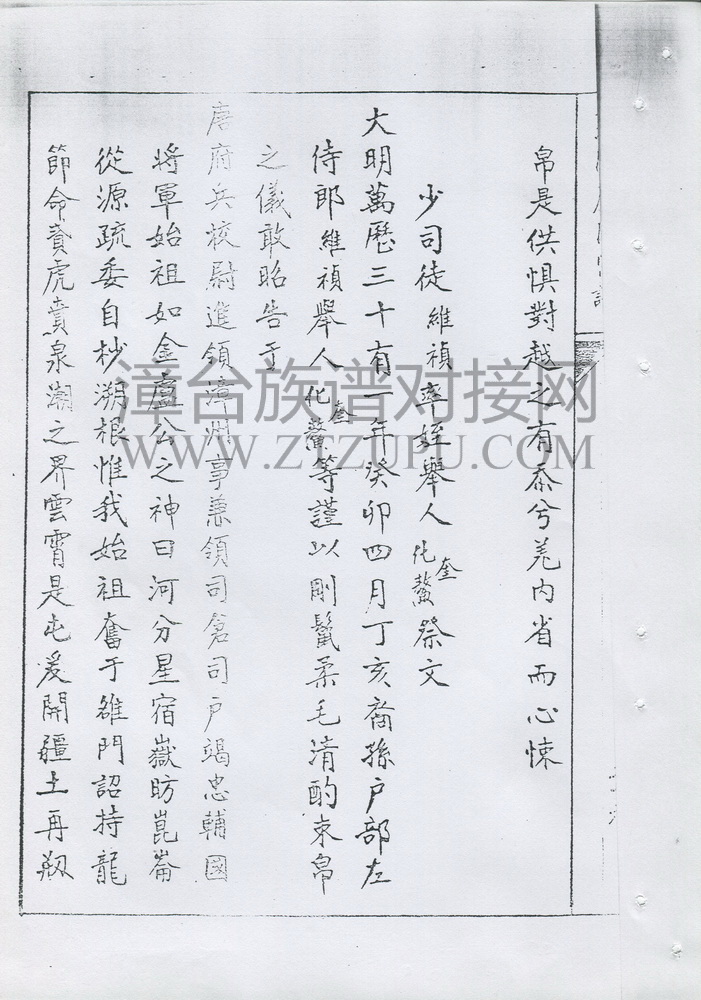 帛是供惧對越之有忝兮羌内省而心悚
少司徒維禎率姪舉人化鰲奎祭文
大明萬歷三十有一年癸卯四月丁亥裔孫户部左
侍郎維禎舉人化鰲奎等謹以剛鬣柔毛清酌束帛
之儀敢昭告于
唐府兵校尉進領漳州事兼領司倉司户竭忠輔國
將軍始祖如金盧公之神曰河分星宿嶽昉崑崙
從源疏委自杪溯根惟我始祖奮于雒門詔持龍
節命賁虎賁泉潮之界雲霄是屯爰開疆土再
漳台族谱对接网
WWW.ZTZUPU.COM